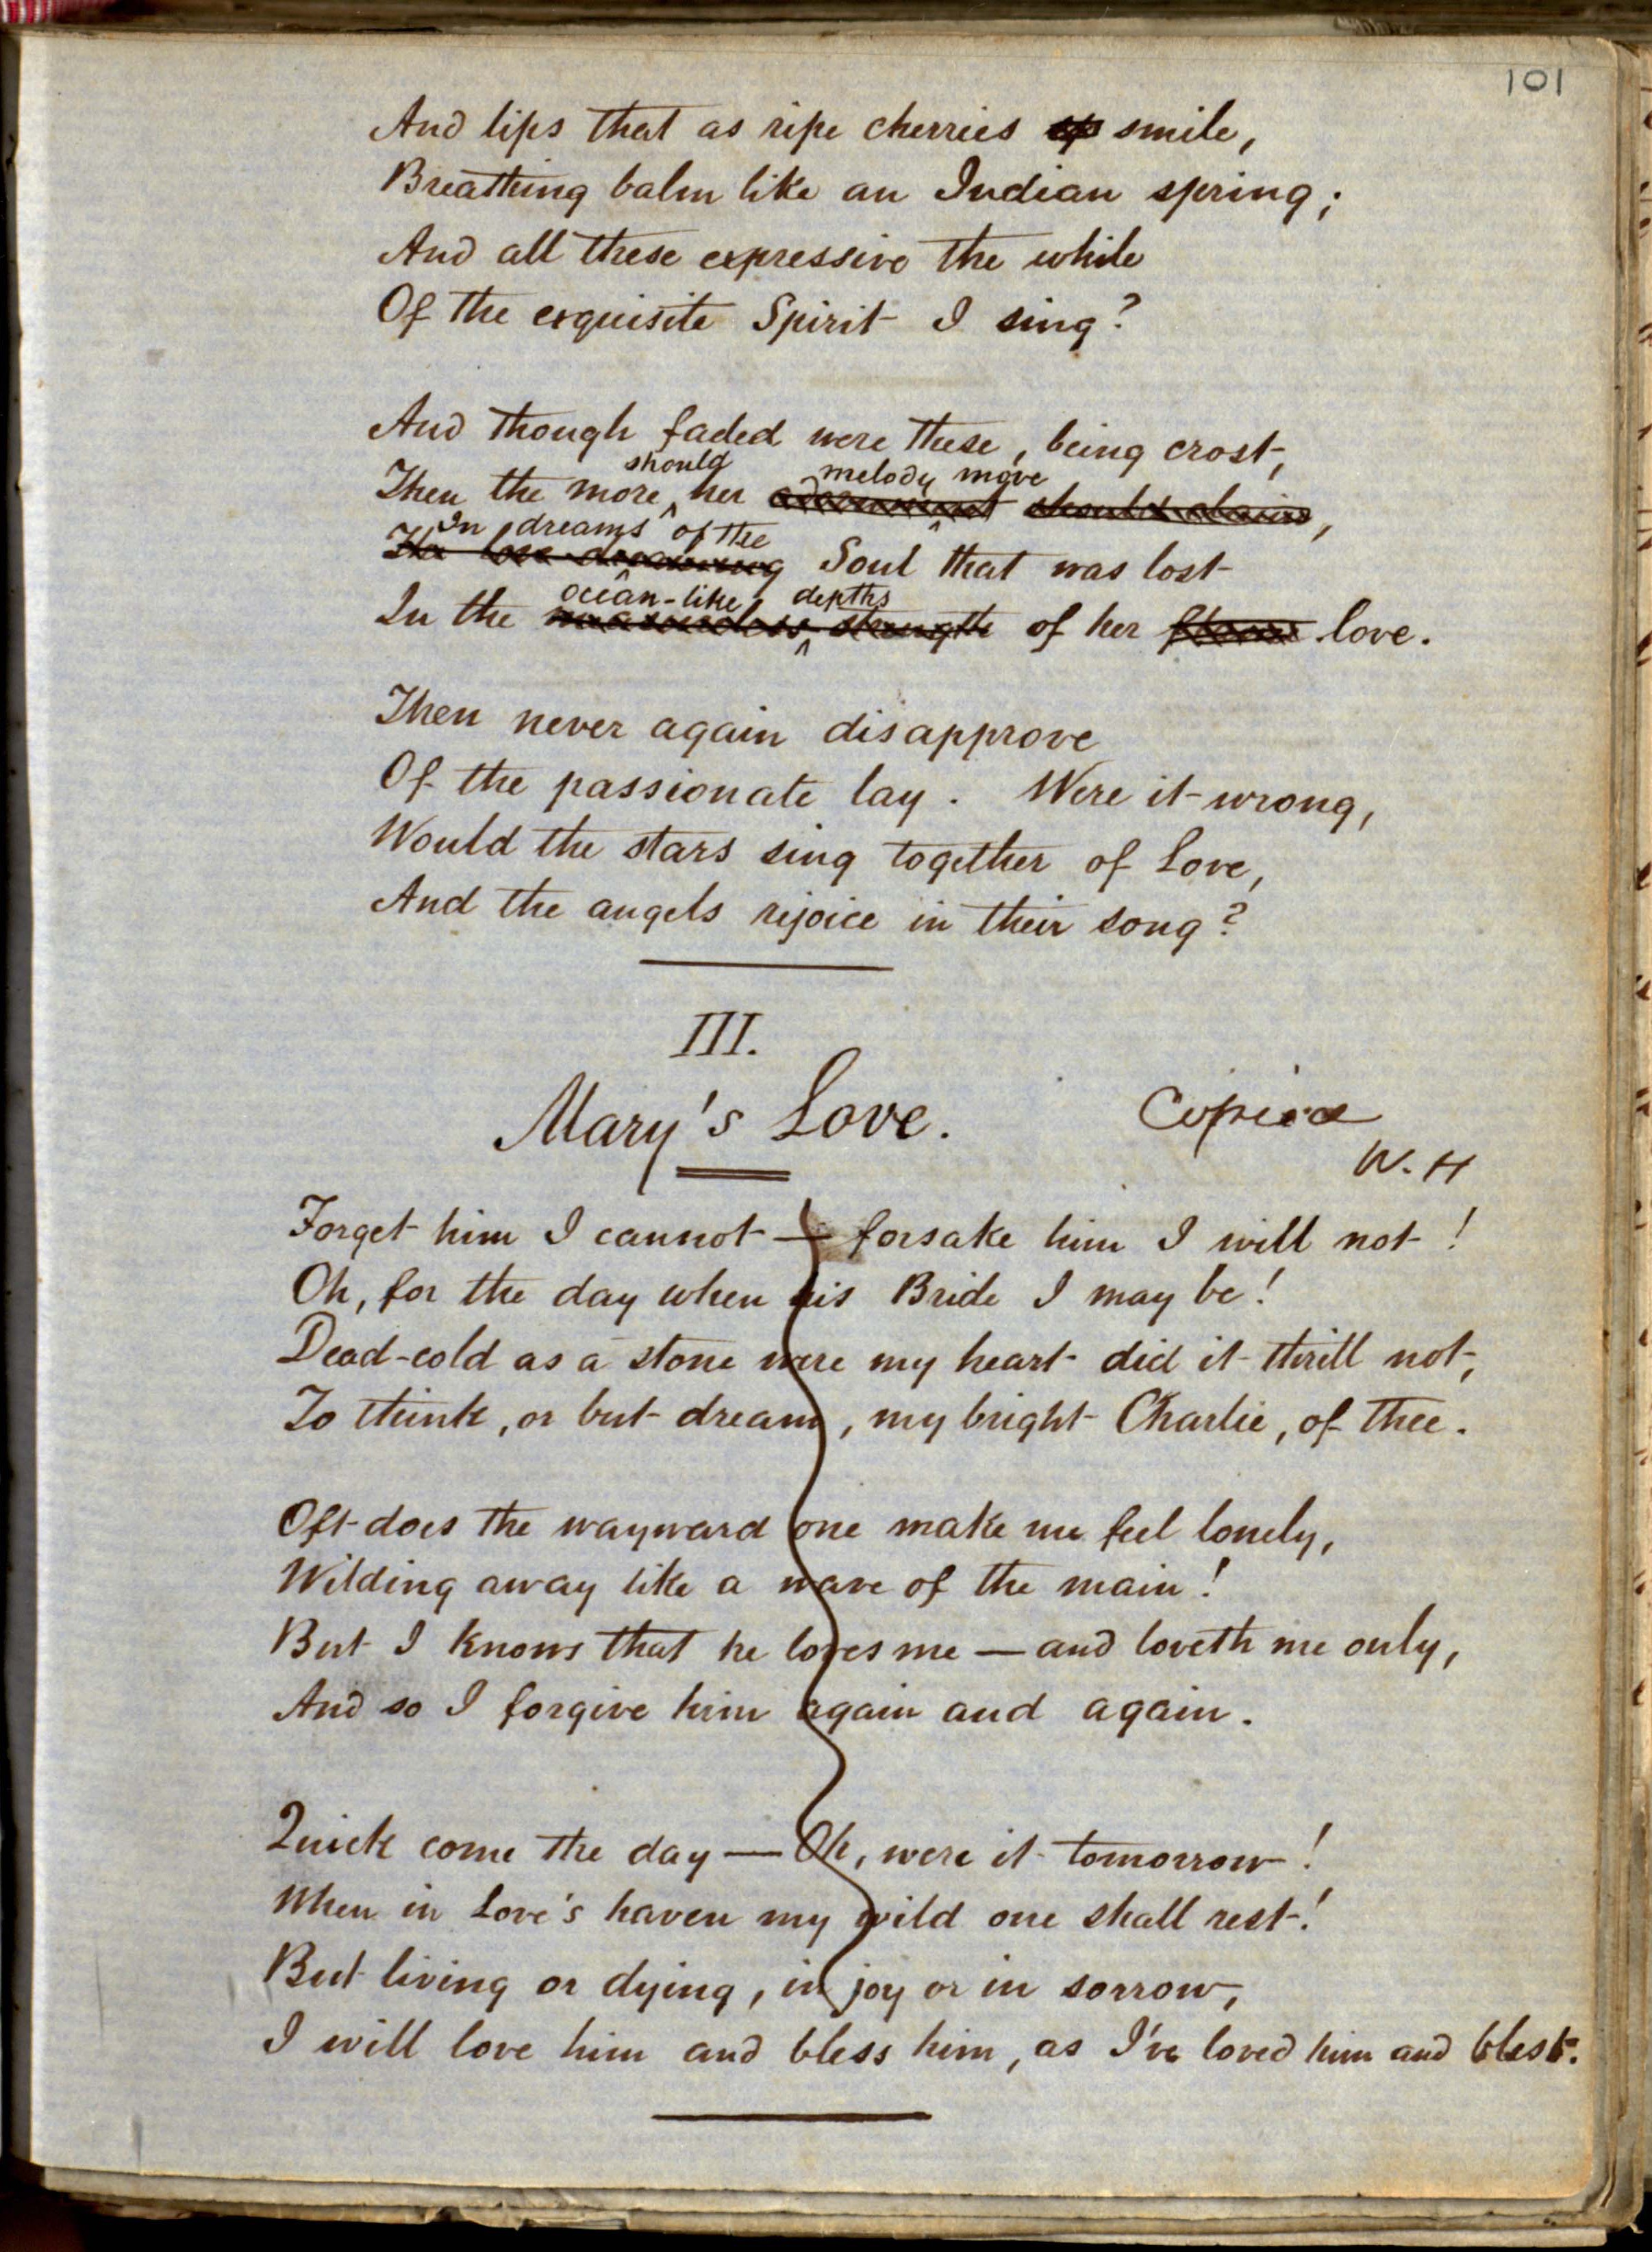 101
And lips that as ripe cherries smile,
Breathing balm like an Indian spring;
And all these expressive the while
Of the exquisite Spirit I sing?
And though faded were these, being crost,
should melody move
Then the more her ,
In dreams of the
Soul that was lost
ocean-like depths
In the strength of her love.
Then never again disapprove
Of the passionate lay. Were it wrong,
Would the stars sing together of Love,
And the angels rejoice in their song?
III.
Mary's Love.
Copied
W. H
Forget him I cannot — forsake him I will not!
Oh, for the day when his Bride I may be!
Dead-cold as a stone were my heart did it thrill not,
To think, or but dream, my bright Charlie, of thee.
Oft does the wayward one make me feel lonely,
Wilding away like a wave of the main!
But I knows that he loves me — and loveth me only,
And so I forgive him again and again.
Quick come the day — Oh, were it tomorrow!
When in Love's haven my wild one shall rest!
But living or dying, in joy or in sorrow,
I will love him and bless him, as I've loved him and blest.